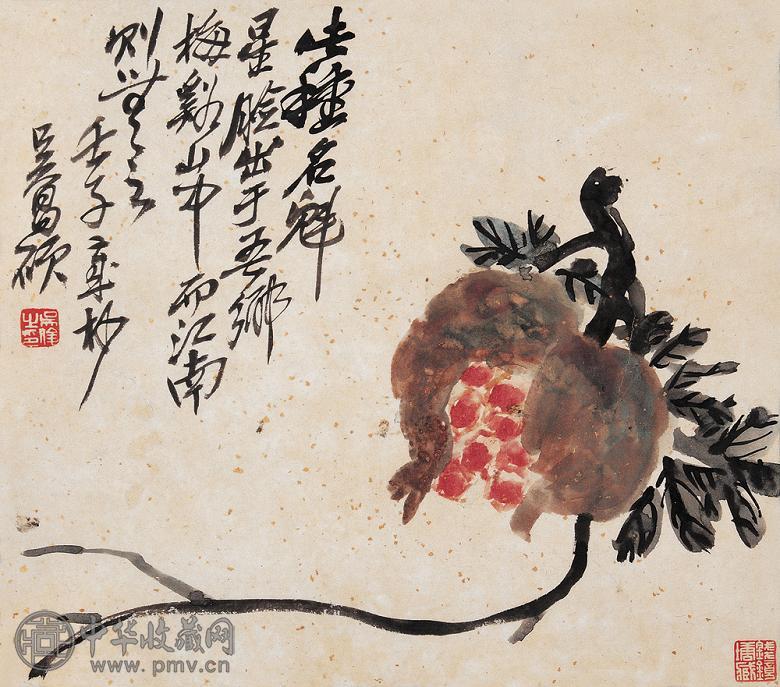 此種名魁
星臉出于吾鄉
梅谿山中而江南
則無之
壬子秋杪
吳昌碩
吳俊之印
中华收藏网
www.pmv.cn